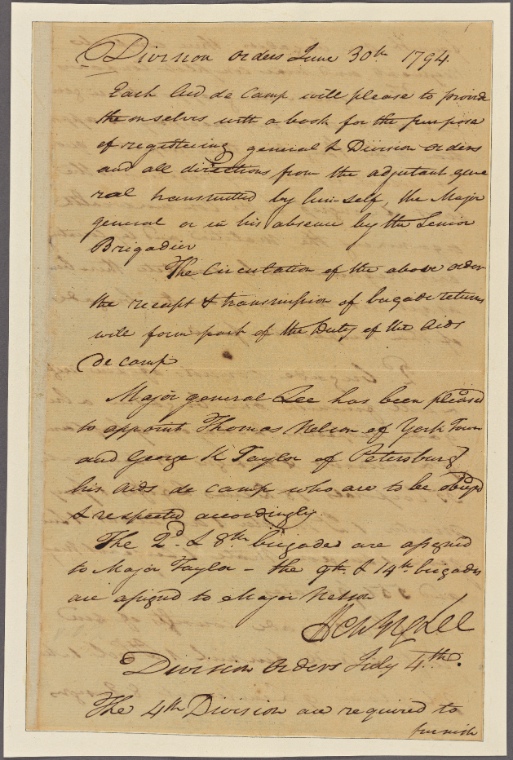 Division orders June 30th 1794.
Each Aid de Camp will please to provide
themselves with a book for the purpose
of registering general & Division orders
and all directions from the adjutant gene
ral transmitted by himself, the Major
general or in his absence by the Senior
Brigadier
The Circulation of the above order
the receipt & transmission of brigade returns
will form part of the Duty of the Aids
de camp
Major general Lee has been pleased
to appoint Thomas Nelson of York Town
and George K Taylor of Petersburg
his aids de camp who are to be obeyd
& respected accordingly
The 2d & 8th brigades are assigned
to Major Taylor - the 9th & 14th brigades
are assigned to Major Nelson
Henry Lee
Division orders July 4th.
The 4th Division are required to
furnish